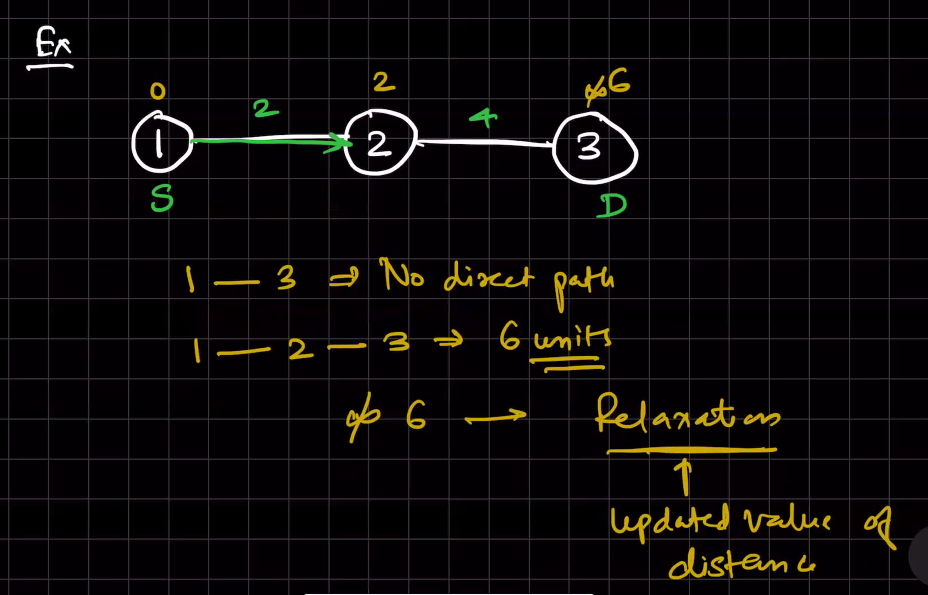 Ex
0 2 ∞ 6
2 4
1 2 3
S D
1 — 3 ⇒ No direct path
1 — 2 — 3 ⇒ 6 units
∞ 6 → Relaxation
↑
updated value of
distance